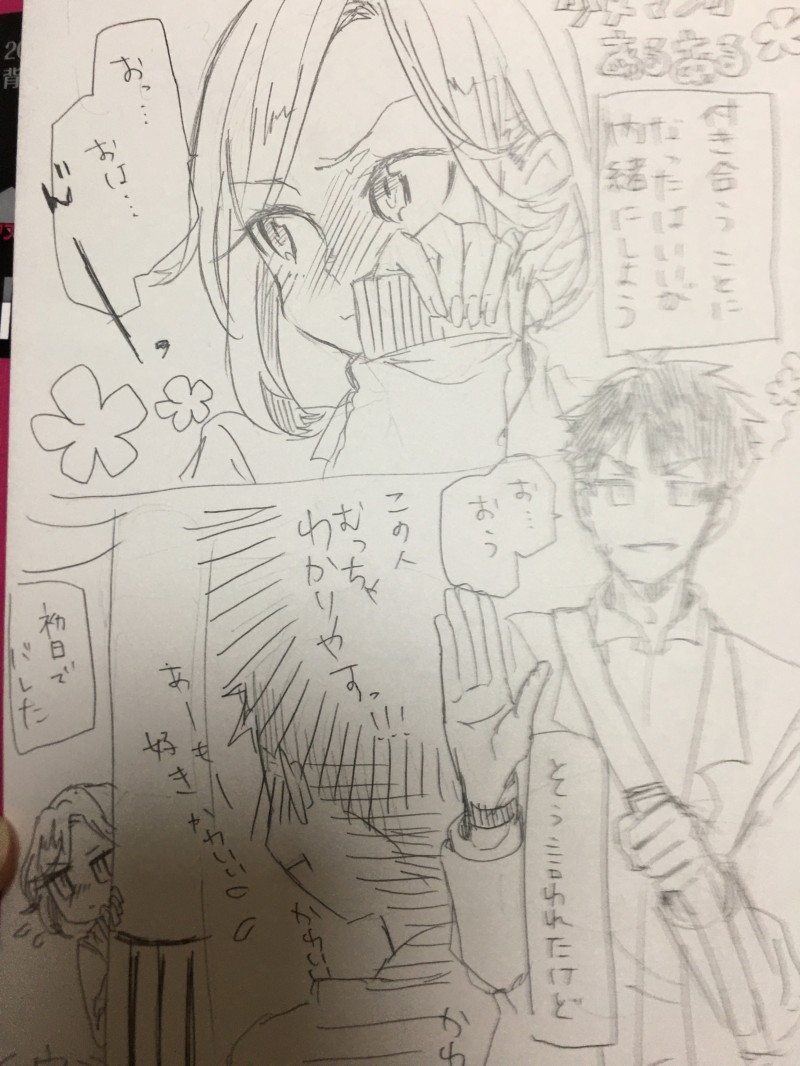 あるある
付き合うことに
なったはいいが
内緒にしよう
おっ…
おは…
お…
おう
そう言われたけど
この人
むっちゃ
わかりやすっ…!!!
かわいい
かわ
あーもー
好き
かわいい
初日で
バレた